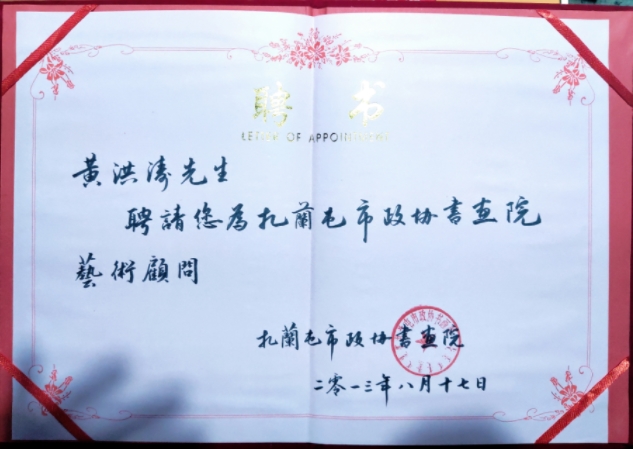 聘书
LETTER OF APPOINTMENT
黄洪涛先生
聘請您为扎蘭屯市政协書画院
藝術顧問
扎蘭屯市政协書画院
二零一三年八月十七日